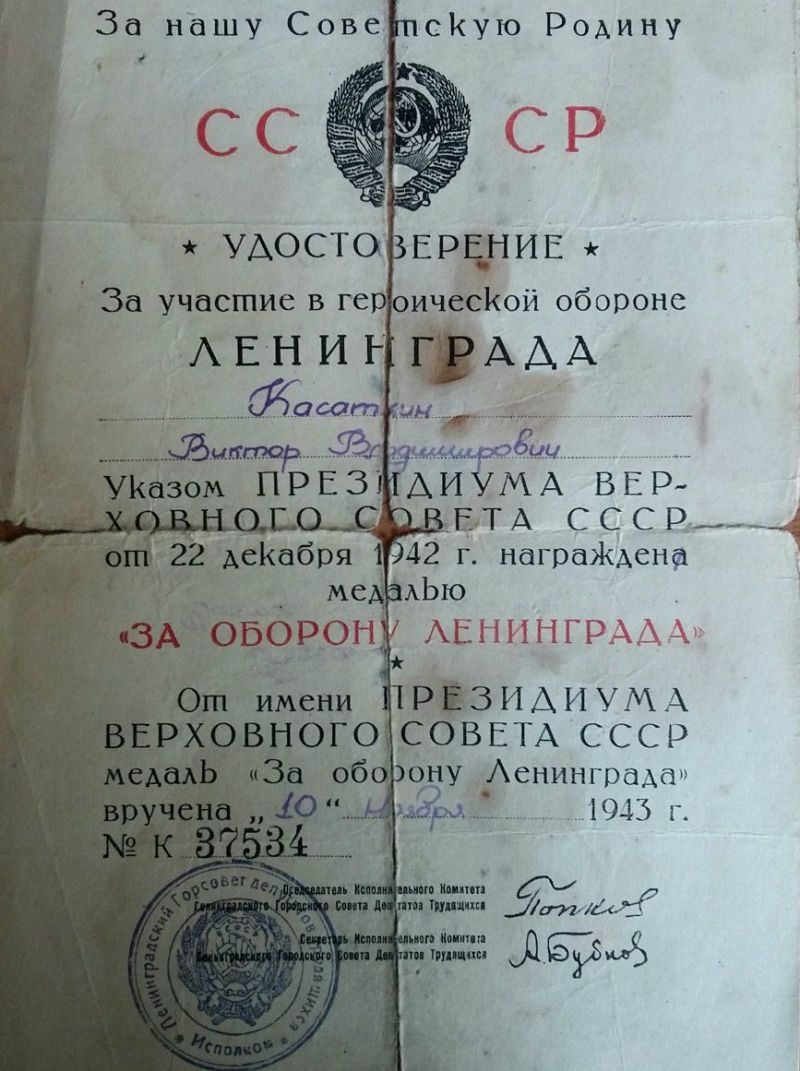 За нашу Советскую Родину
СССР
★ УДОСТОВЕРЕНИЕ ★
За участие в героической обороне
ЛЕНИНГРАДА
Касаткин
Виктор Владимирович
Указом ПРЕЗИДИУМА ВЕР-
ХОВНОГО СОВЕТА СССР
от 22 декабря 1942 г. награждена
медалью
«ЗА ОБОРОНУ ЛЕНИНГРАДА»
★
От имени ПРЕЗИДИУМА
ВЕРХОВНОГО СОВЕТА СССР
медаль «За оборону Ленинграда»
вручена „10“ ноября 1943 г.
№ К 37534
Председатель Исполнительного Комитета
Ленинградского Городского Совета Депутатов Трудящихся
Попков
Секретарь Исполнительного Комитета
Ленинградского Городского Совета Депутатов Трудящихся
А.Бубнов
Ленинградский Горсовет депутатов трудящихся
★ Исполком ★